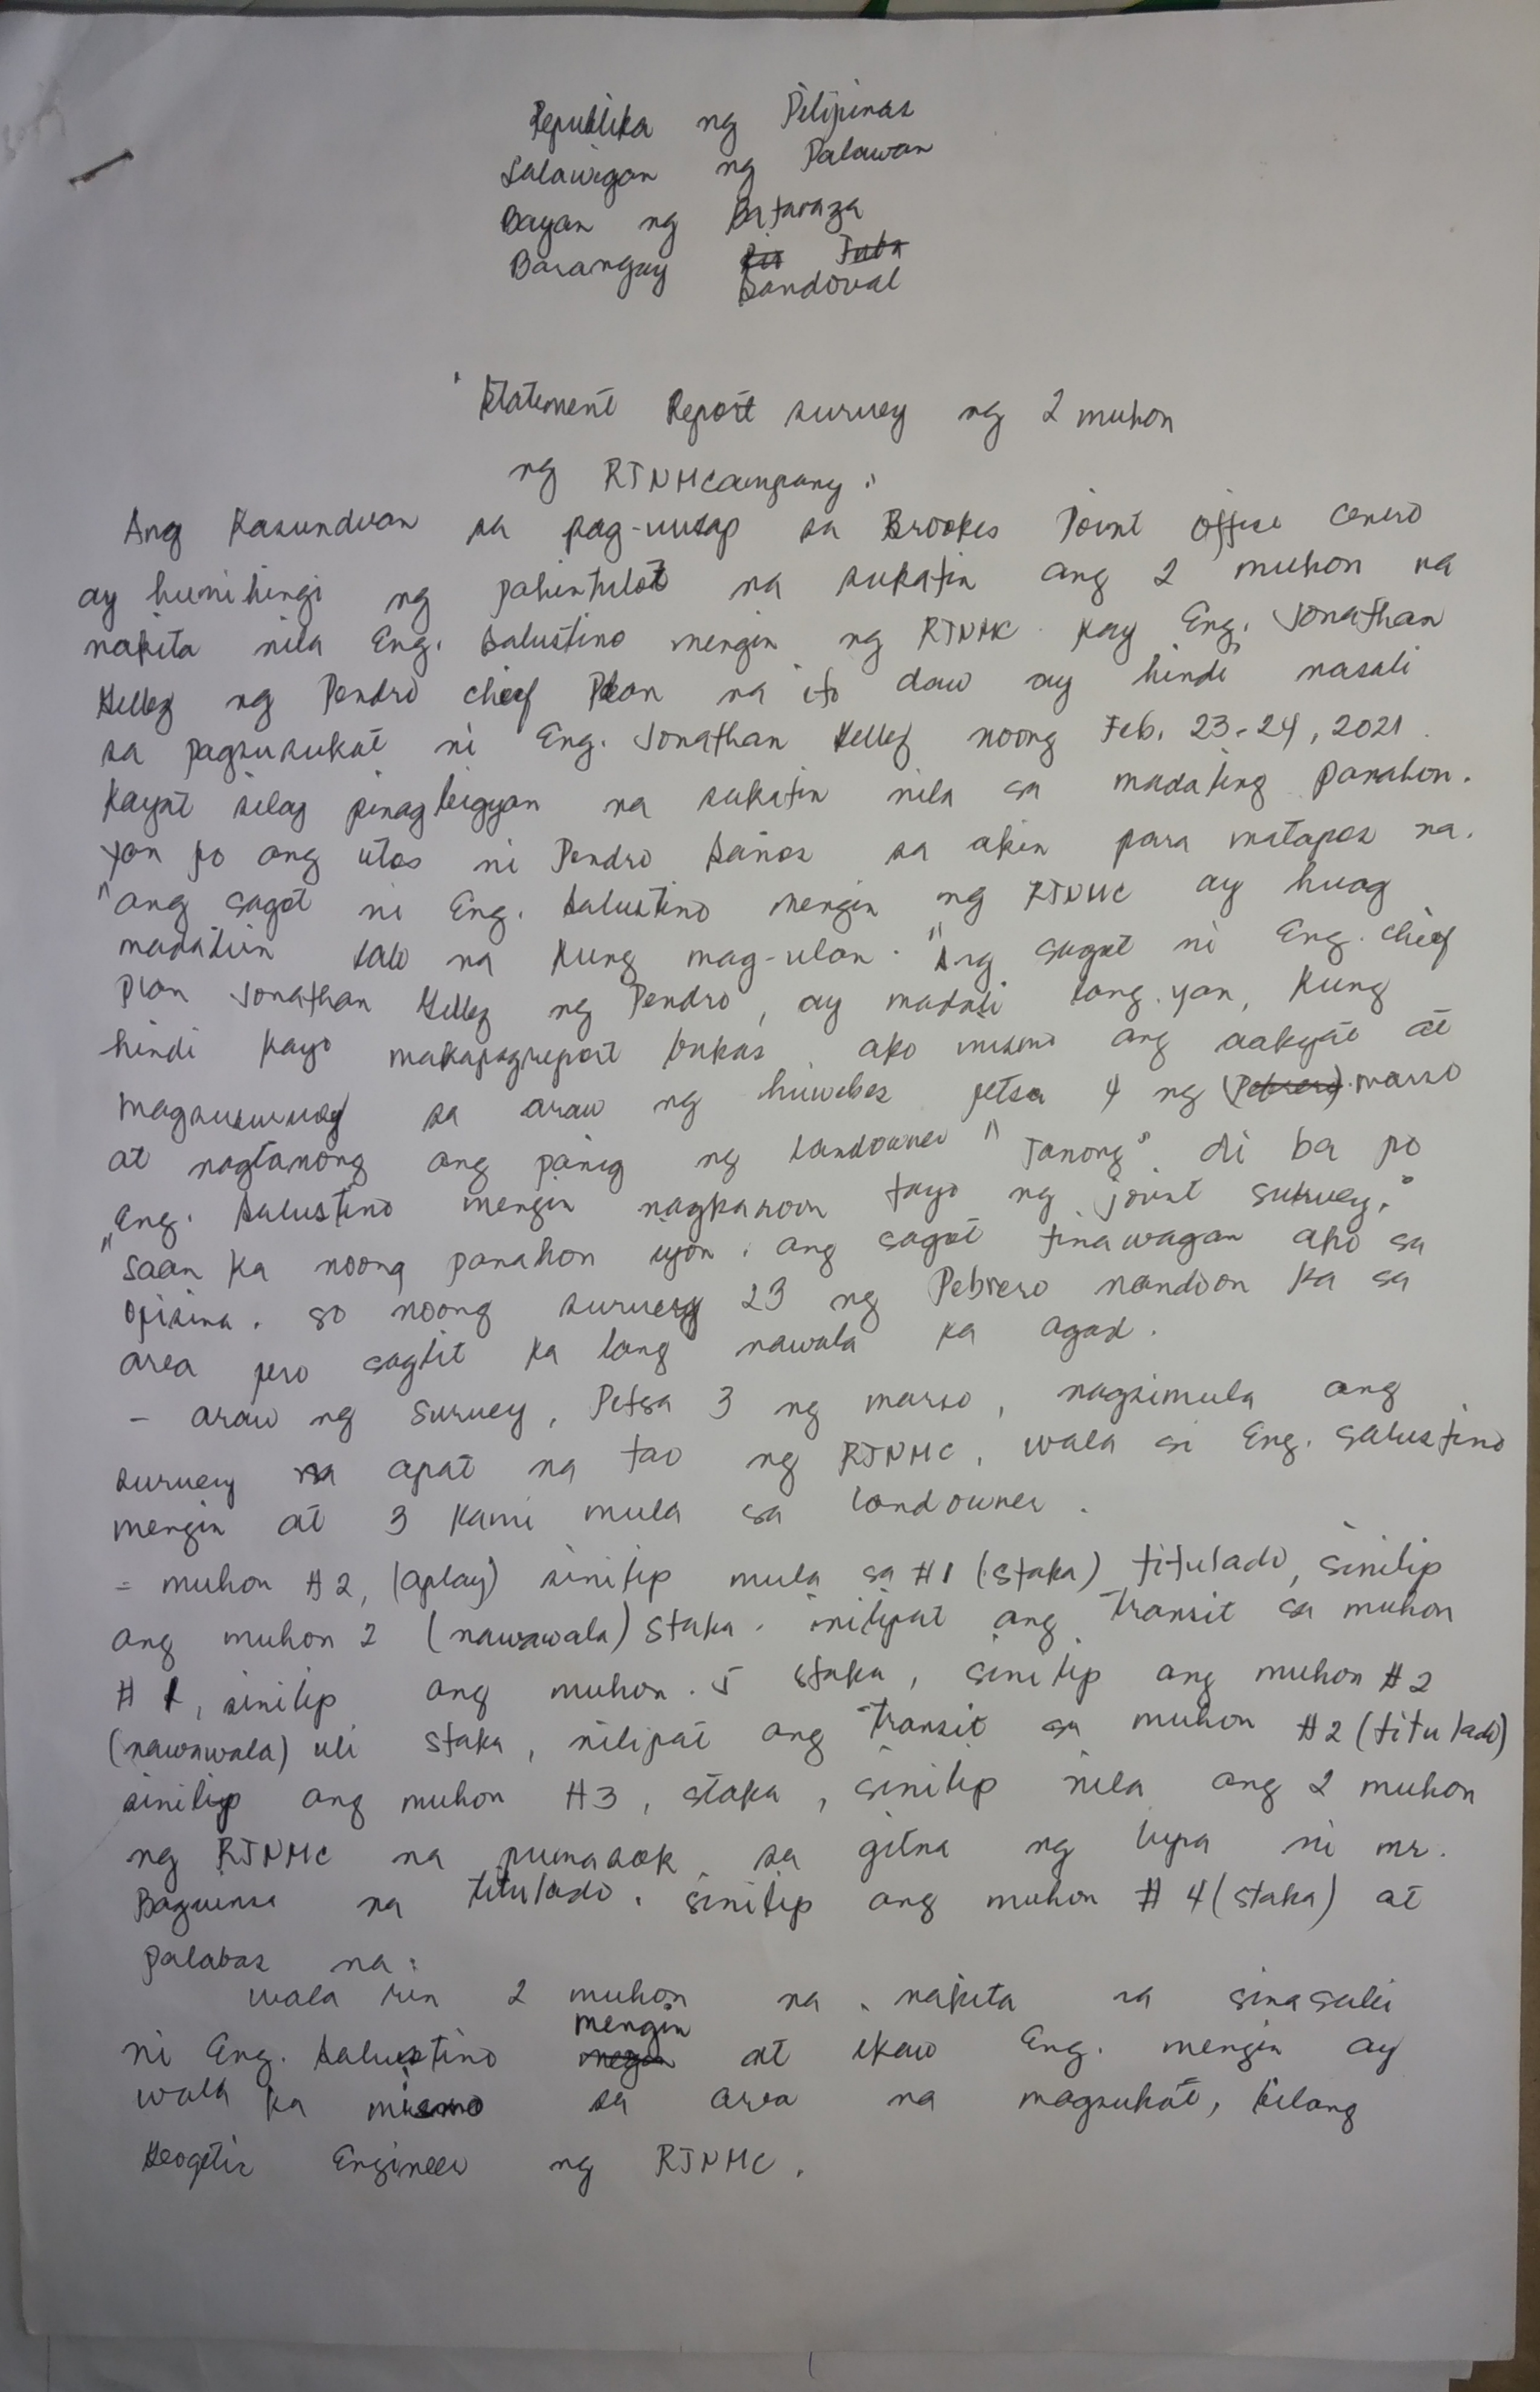 Republika ng Pilipinas
Lalawigan ng Palawan
Bayan ng Bataraza
Barangay Rio Tuba
Sandoval
Statement Report survey ng 2 muhon
ng RTNMCompany:
Ang Kasunduan sa pag-uusap sa Brookes Point office cenro
ay humihingi ng pahintulot na sukatin ang 2 muhon na
nakita nila Eng. Salustino mengin ng RTNMC kay Eng. Jonathan
ng Pendro chief Plan na ito daw ay hindi nasali
sa pagsusukat ni Eng. Jonathan noong Feb. 23-24, 2021.
kayat silay pinagbigyan na sukatin nila sa madaling panahon.
yan po ang utos ni Pendro Baños sa akin para matapos na.
"ang sagot ni Eng. Salustino mengin ng RTNMC ay huag
madaliin lalo na kung mag-ulan. "Ang sagot ni Eng. chief
plan Jonathan ng Pendro, ay madali lang yan, kung
hindi kayo makapagreport bukas, ako mismo ang aakyat at
magsusurvey sa araw ng huwebes petsa 4 ng (Pebrero) marso
at nagtanong ang panig ng landowner "Tanong". di ba po
Eng. Salustino mengin nagkaroon tayo ng joint survey,"
"saan ka noong panahon iyon. ang sagot tinawagan ako sa
opisina. so noong survey 23 ng Pebrero nandoon ka sa
area pero saglit ka lang nawala ka agad.
- araw ng survey, Petsa 3 ng marso, nagsimula ang
survey na apat na tao ng RTNMC, wala si Eng. Salustino
mengin at 3 kami mula sa landowner.
= muhon #2, (aplay) sinilip mula sa #1 (staka) titulado, sinilip
ang muhon 2 (nawawala) staka. inilipat ang transit sa muhon
# 1, sinilip ang muhon. 5 staka, sinilip ang muhon #2
(nawawala) uli staka, nilipat ang transit sa muhon #2 (titulado)
sinilip ang muhon #3, staka, sinilip nila ang 2 muhon
ng RTNMC na pumasok sa gitna ng lupa ni mr.
na titulado. sinilip ang muhon # 4 (staka) at
palabas na:
wala rin 2 muhon na nakita na sinasali
mengin
ni Eng. Salustino at ikaw Eng. mengin ay
wala ka mismo sa area na magsukat, bilang
Geogetic Engineer ng RTNMC.